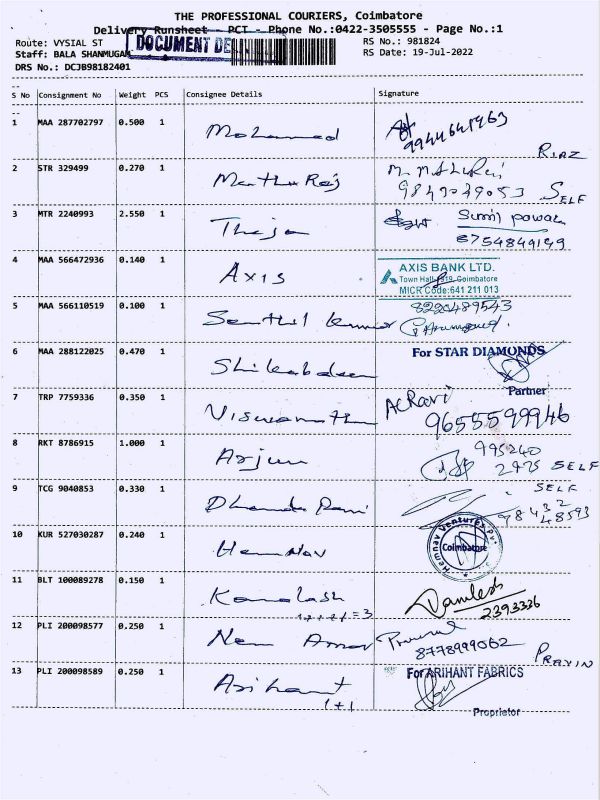 THE PROFESSIONAL COURIERS, Coimbatore
Delivery Runsheet - PCT - Phone No.:0422-3505555 - Page No.:1
Route: VYSIAL ST RS No.: 981824
Staff: BALA SHANMUGAM DOCUMENT DE RS Date: 19-Jul-2022
DRS No.: DCJB98182401
S No Consignment No Weight PCS Consignee Details Signature
1 MAA 287702797 0.500 1 Mohammed 9944641963
RIAZ
2 STR 329499 0.270 1 Marthu Raj
SELF
3 MTR 2240993 2.550 1 Theja Sunil pawar
8754849149
4 MAA 566472936 0.140 1 Axis AXIS BANK LTD.
Town Hall, Coimbatore
MICR Code:641 211 013
5 MAA 566110519 0.100 1 Senthil Kumar 8220489543
6 MAA 288122025 0.470 1 For STAR DIAMONDS
Partner
7 TRP 7759336 0.350 1 Viswanathan AC Ravi
9655599946
8 RKT 8786915 1.000 1 Arjun 995240
2975 SELF
9 TCG 9040853 0.330 1 SELF
98432
48593
10 KUR 527030287 0.240 1 Hemnav Hemnav Ventures Pvt
Coimbatore
11 BLT 100089278 0.150 1 Kamalash
2393336
12 PLI 200098577 0.250 1
8778999062 PRAVIN
13 PLI 200098589 0.250 1 Arihant For ARIHANT FABRICS
1+1
Proprietor